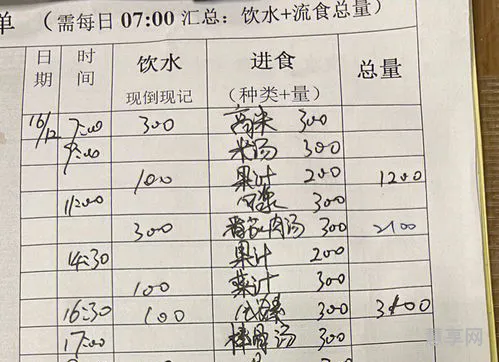 单 (需每日 07:00 汇总：饮水+流食总量)
日期 时间 饮水 现倒现记 进食 (种类+量) 总量
16/12 7:00 300 300
9:00 米汤 300
100 果汁 200 1200
11:00 300
300 肉汤 300 2100
14:30 果汁 200
100 菜汁 300
16:30 100 300
17:00 棒骨汤 300